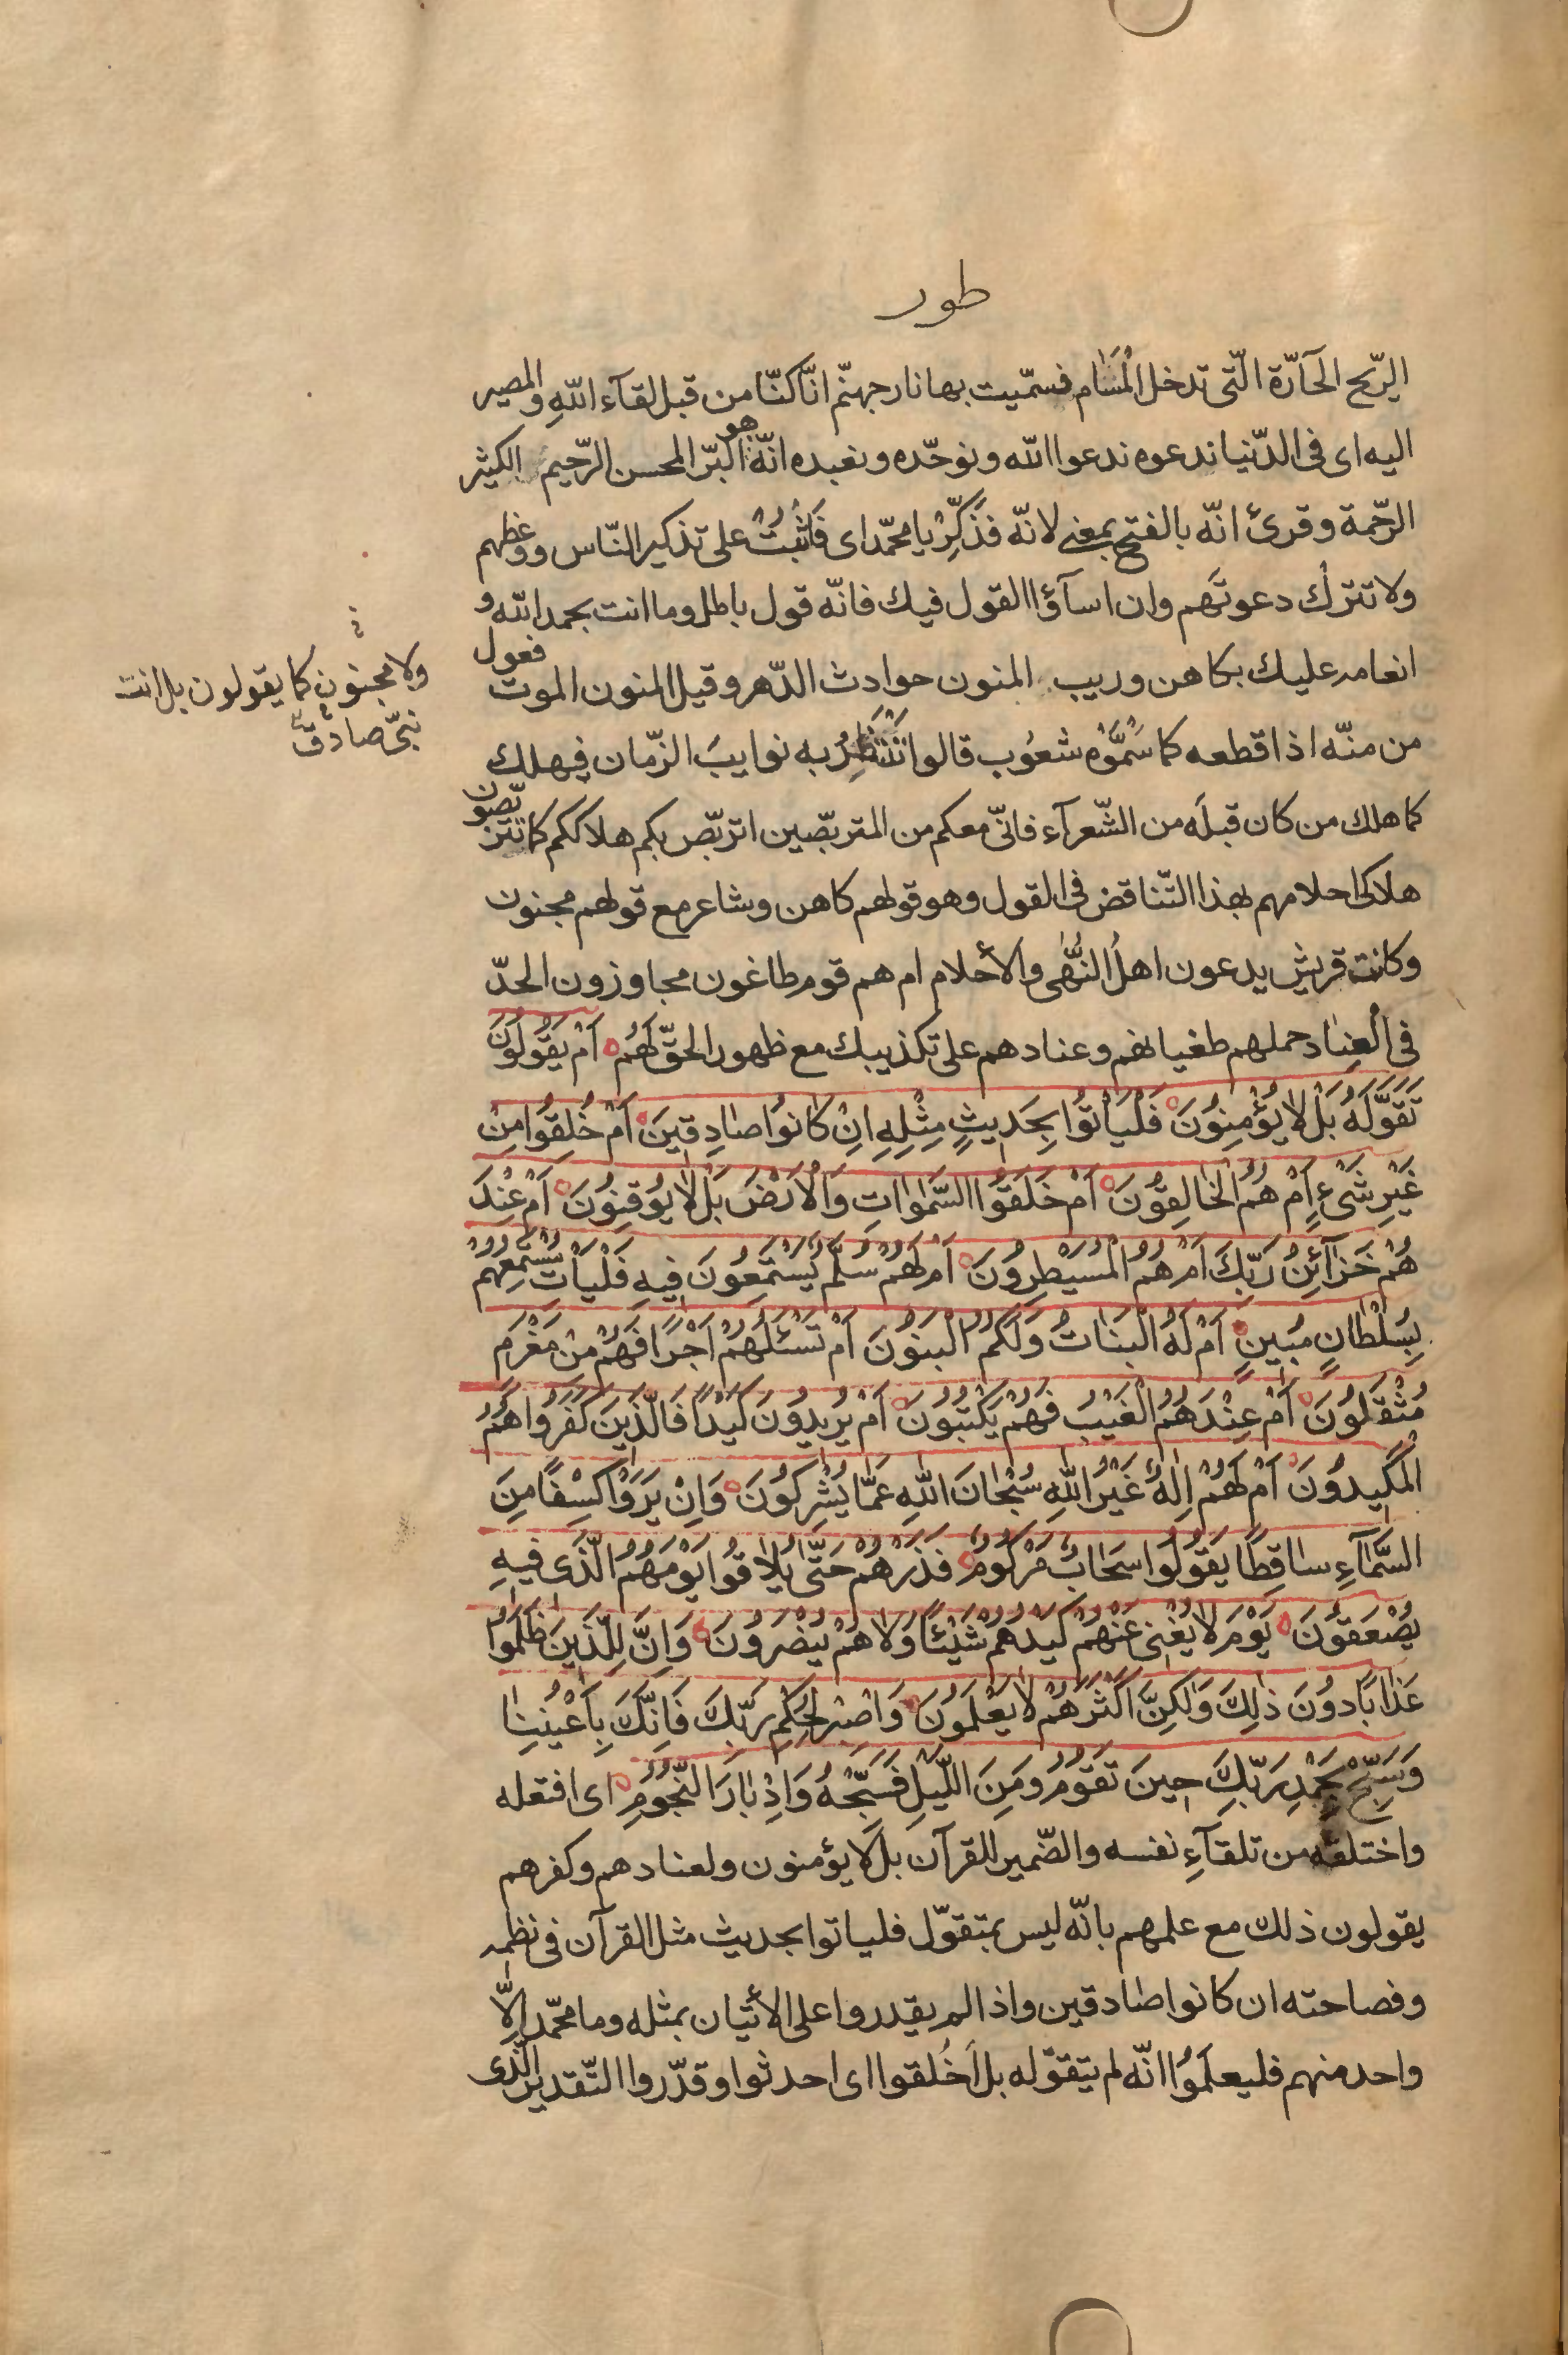 طور
الرّيح الحآرّة الّتى تدخل الْمَسٰام فسمّيت بها نار جهنّم انّا كنّا من قبل لقآء اللّٰه والمصير
اليه اى فى الدّنيا ندعوه ندعوا اللّٰه ونوحّده ونعبده انّه هو البرّ المحسن الرّحيم الكثير
الرّحمة وقرئ انّه بالفتح بمعنى لانّه فذَكِّرْ يا محمّد اى فَاثْبُتْ على تذكير النّاس ووعظهم
ولا تترك دعوتَهم وان اسآؤا القول فيك فانّه قول باطل وما انت بحمد اللّٰه و
انعامه عليك بكاهن وريب المنون حوادث الدّهر وقيل المنون الموت فعول
ولا مجنون كما يقولون بل انت
نبىّ صادق
من منّه اذا قطعه كما سَمَّوْه شعُوب قالوا نَنْتَظِرُ به نوايبَ الزّمان فيهلك
كما هلك من كان قبلَه من الشّعرآء فانّى معكم من المتربّصين اتربّص بكم هلاككم كما تتربّصون
هلاكى احلامهم بهذا التّناقض فى القول وهو قولهم كاهن وشاعر مع قولهم مجنون
وكانت قريش يدعون اهلُ النُّهٰى والأحلام ام هم قوم طاغون مجاوزون الحدّ
فى الْعِنٰاد حملهم طغيانهم وعنادهم على تكذيبك مع ظهور الحقّ لَهُم أَمْ يَقُولُونَ
تَقَوَّلَهُ بَلْ لٰا يُؤْمِنُونَ فَلْيَأْتُوا بِحَدِيثٍ مِثْلِهِ اِنْ كٰانُوا صٰادِقِينَ أَمْ خُلِقُوا مِنْ
غَيْرِ شَىْءٍ أَمْ هُمُ الْخٰالِقُونَ أَمْ خَلَقُوا السَّمٰوٰاتِ وَالْأَرْضَ بَلْ لٰا يُوقِنُونَ أَمْ عِنْدَ
هُمْ خَزٰآئِنُ رَبِّكَ أَمْ هُمُ الْمُسَيْطِرُونَ أَمْ لَهُمْ سُلَّمٌ يَسْتَمِعُونَ فِيهِ فَلْيَأْتِ مُسْتَمِعُهُمْ
بِسُلْطٰانٍ مُبِينٍ أَمْ لَهُ الْبَنٰاتُ وَلَكُمُ الْبَنُونَ أَمْ تَسْئَلُهُمْ اَجْرًا فَهُمْ مِنْ مَغْرَمٍ
مُثْقَلُونَ أَمْ عِنْدَهُمُ الْغَيْبُ فَهُمْ يَكْتُبُونَ أَمْ يُرِيدُونَ كَيْدًا فَالَّذِينَ كَفَرُوا هُمُ
الْمَكِيدُونَ أَمْ لَهُمْ اِلٰهٌ غَيْرُ اللّٰهِ سُبْحٰانَ اللّٰهِ عَمّٰا يُشْرِكُونَ وَاِنْ يَرَوْا كِسْفًا مِنَ
السَّمٰآءِ سٰاقِطًا يَقُولُوا سَحٰابٌ مَرْكُومٌ فَذَرْهُمْ حَتّٰى يُلٰاقُوا يَوْمَهُمُ الَّذِى فِيهِ
يُصْعَقُونَ يَوْمَ لٰا يُغْنِى عَنْهُمْ كَيْدُهُمْ شَيْئًا وَلٰا هُمْ يُنْصَرُونَ وَاِنَّ لِلَّذِينَ ظَلَمُوا
عَذٰابًا دُونَ ذٰلِكَ وَلٰكِنَّ اَكْثَرَهُمْ لٰا يَعْلَمُونَ وَاصْبِرْ لِحُكْمِ رَبِّكَ فَاِنَّكَ بِأَعْيُنِنٰا
وَسَبِّحْ بِحَمْدِ رَبِّكَ حِينَ تَقُومُ وَمِنَ اللَّيْلِ فَسَبِّحْهُ وَاِدْبٰارَ النُّجُومِ اى افتعله
واختلقه من تلقآءِ نفسه والضّمير للقرآن بل لا يؤمنون ولعنادهم وكفرهم
يقولون ذلك مع علمهم بانّه ليس بمتقوّل فلياتوا بحديث مثل القرآن فى نظمه
وفصاحته ان كانوا صٰادقين واذا لم يقدروا على الأتيان بمثله وما محمّد اِلّٰا
واحد منهم فليعلَمُوا انّه لم يتقوّله بل أَخُلقوا اى احدثوا وقدّروا التّقدير الّذى